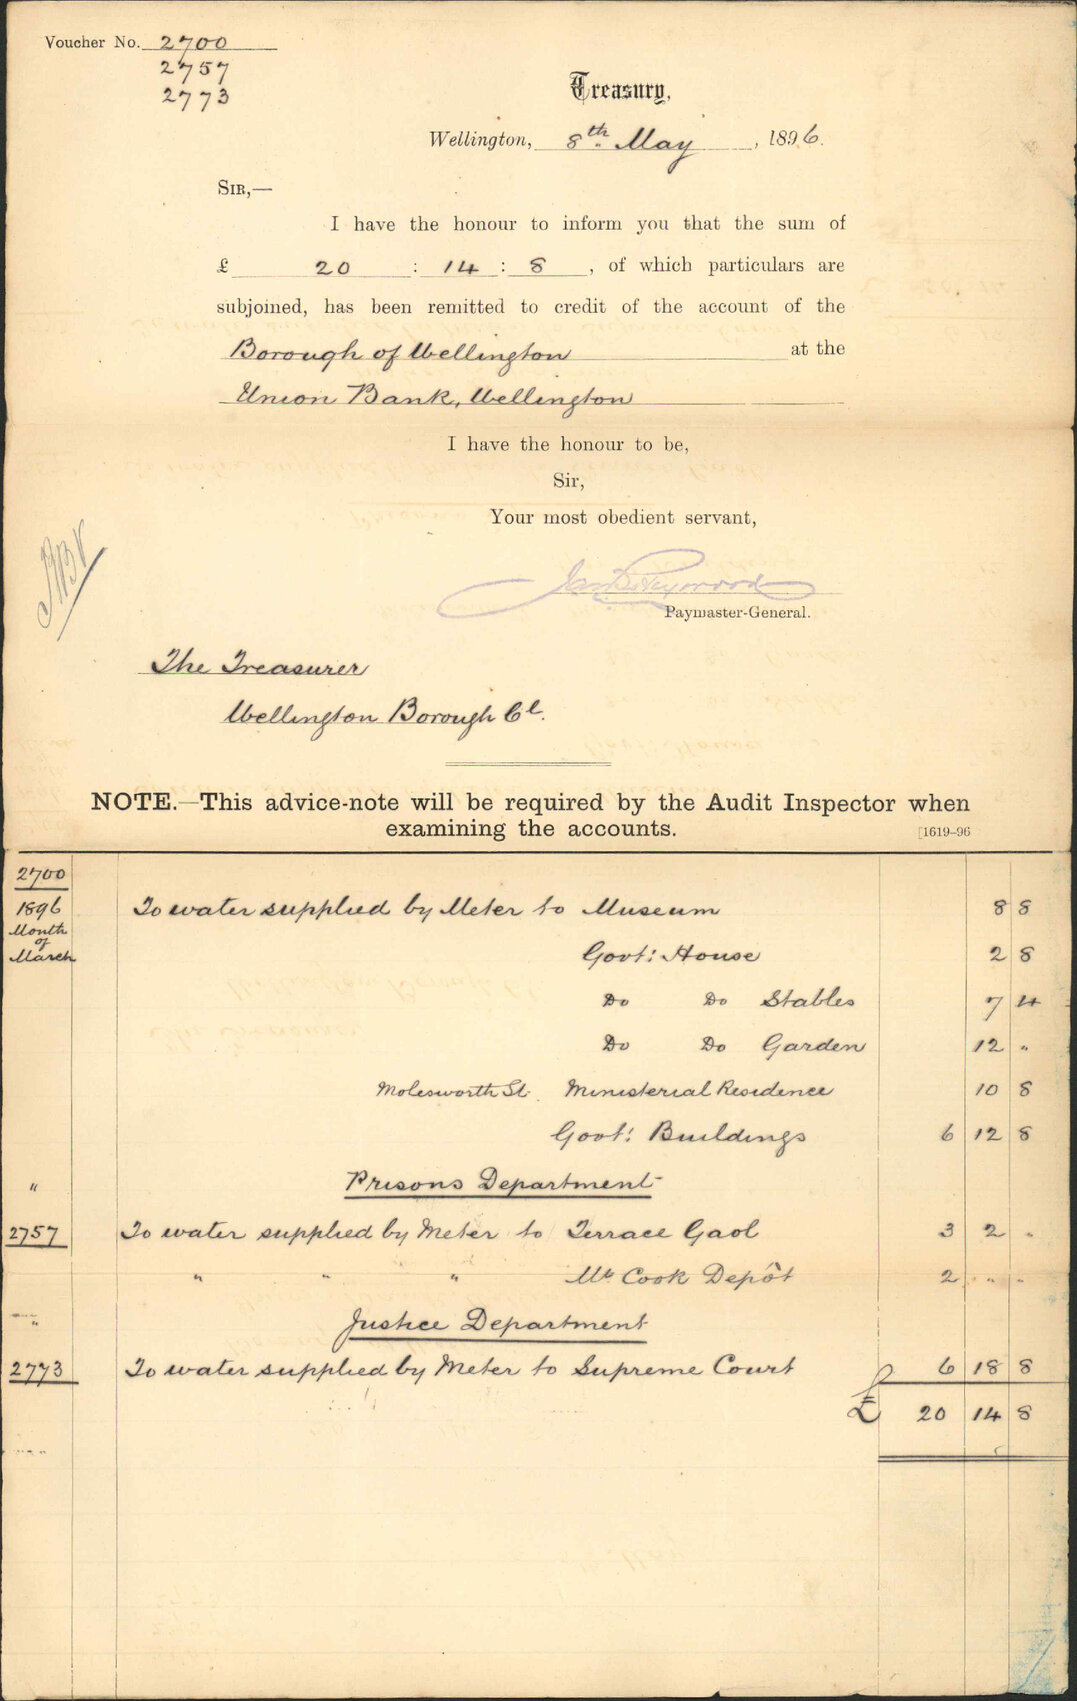 Voucher No. 2700
2757
2773
Treasury,
Wellington, 8th May, 1896.
SIR,—
I have the honour to inform you that the sum of
£ 20 : 14 : 8, of which particulars are
subjoined, has been remitted to credit of the account of the
Borough of Wellington at the
Union Bank, Wellington
I have the honour to be,
Sir,
Your most obedient servant,
Paymaster-General.
The Treasurer
Wellington Borough Cl.
NOTE.—This advice-note will be required by the Audit Inspector when
examining the accounts. [1619–96
2700
1896 To water supplied by Meter to Museum 8 8
Month
of
March Govt: House 2 8
Do Do Stables 7 4
Do Do Garden 12 "
Molesworth St. Ministerial Residence 10 8
Govt: Buildings 6 12 8
" Prisons Department
2757 To water supplied by Meter to Terrace Gaol 3 2 "
" " " Mt Cook Depôt 2 " "
" Justice Department
2773 To water supplied by Meter to Supreme Court 6 18 8
£ 20 14 8